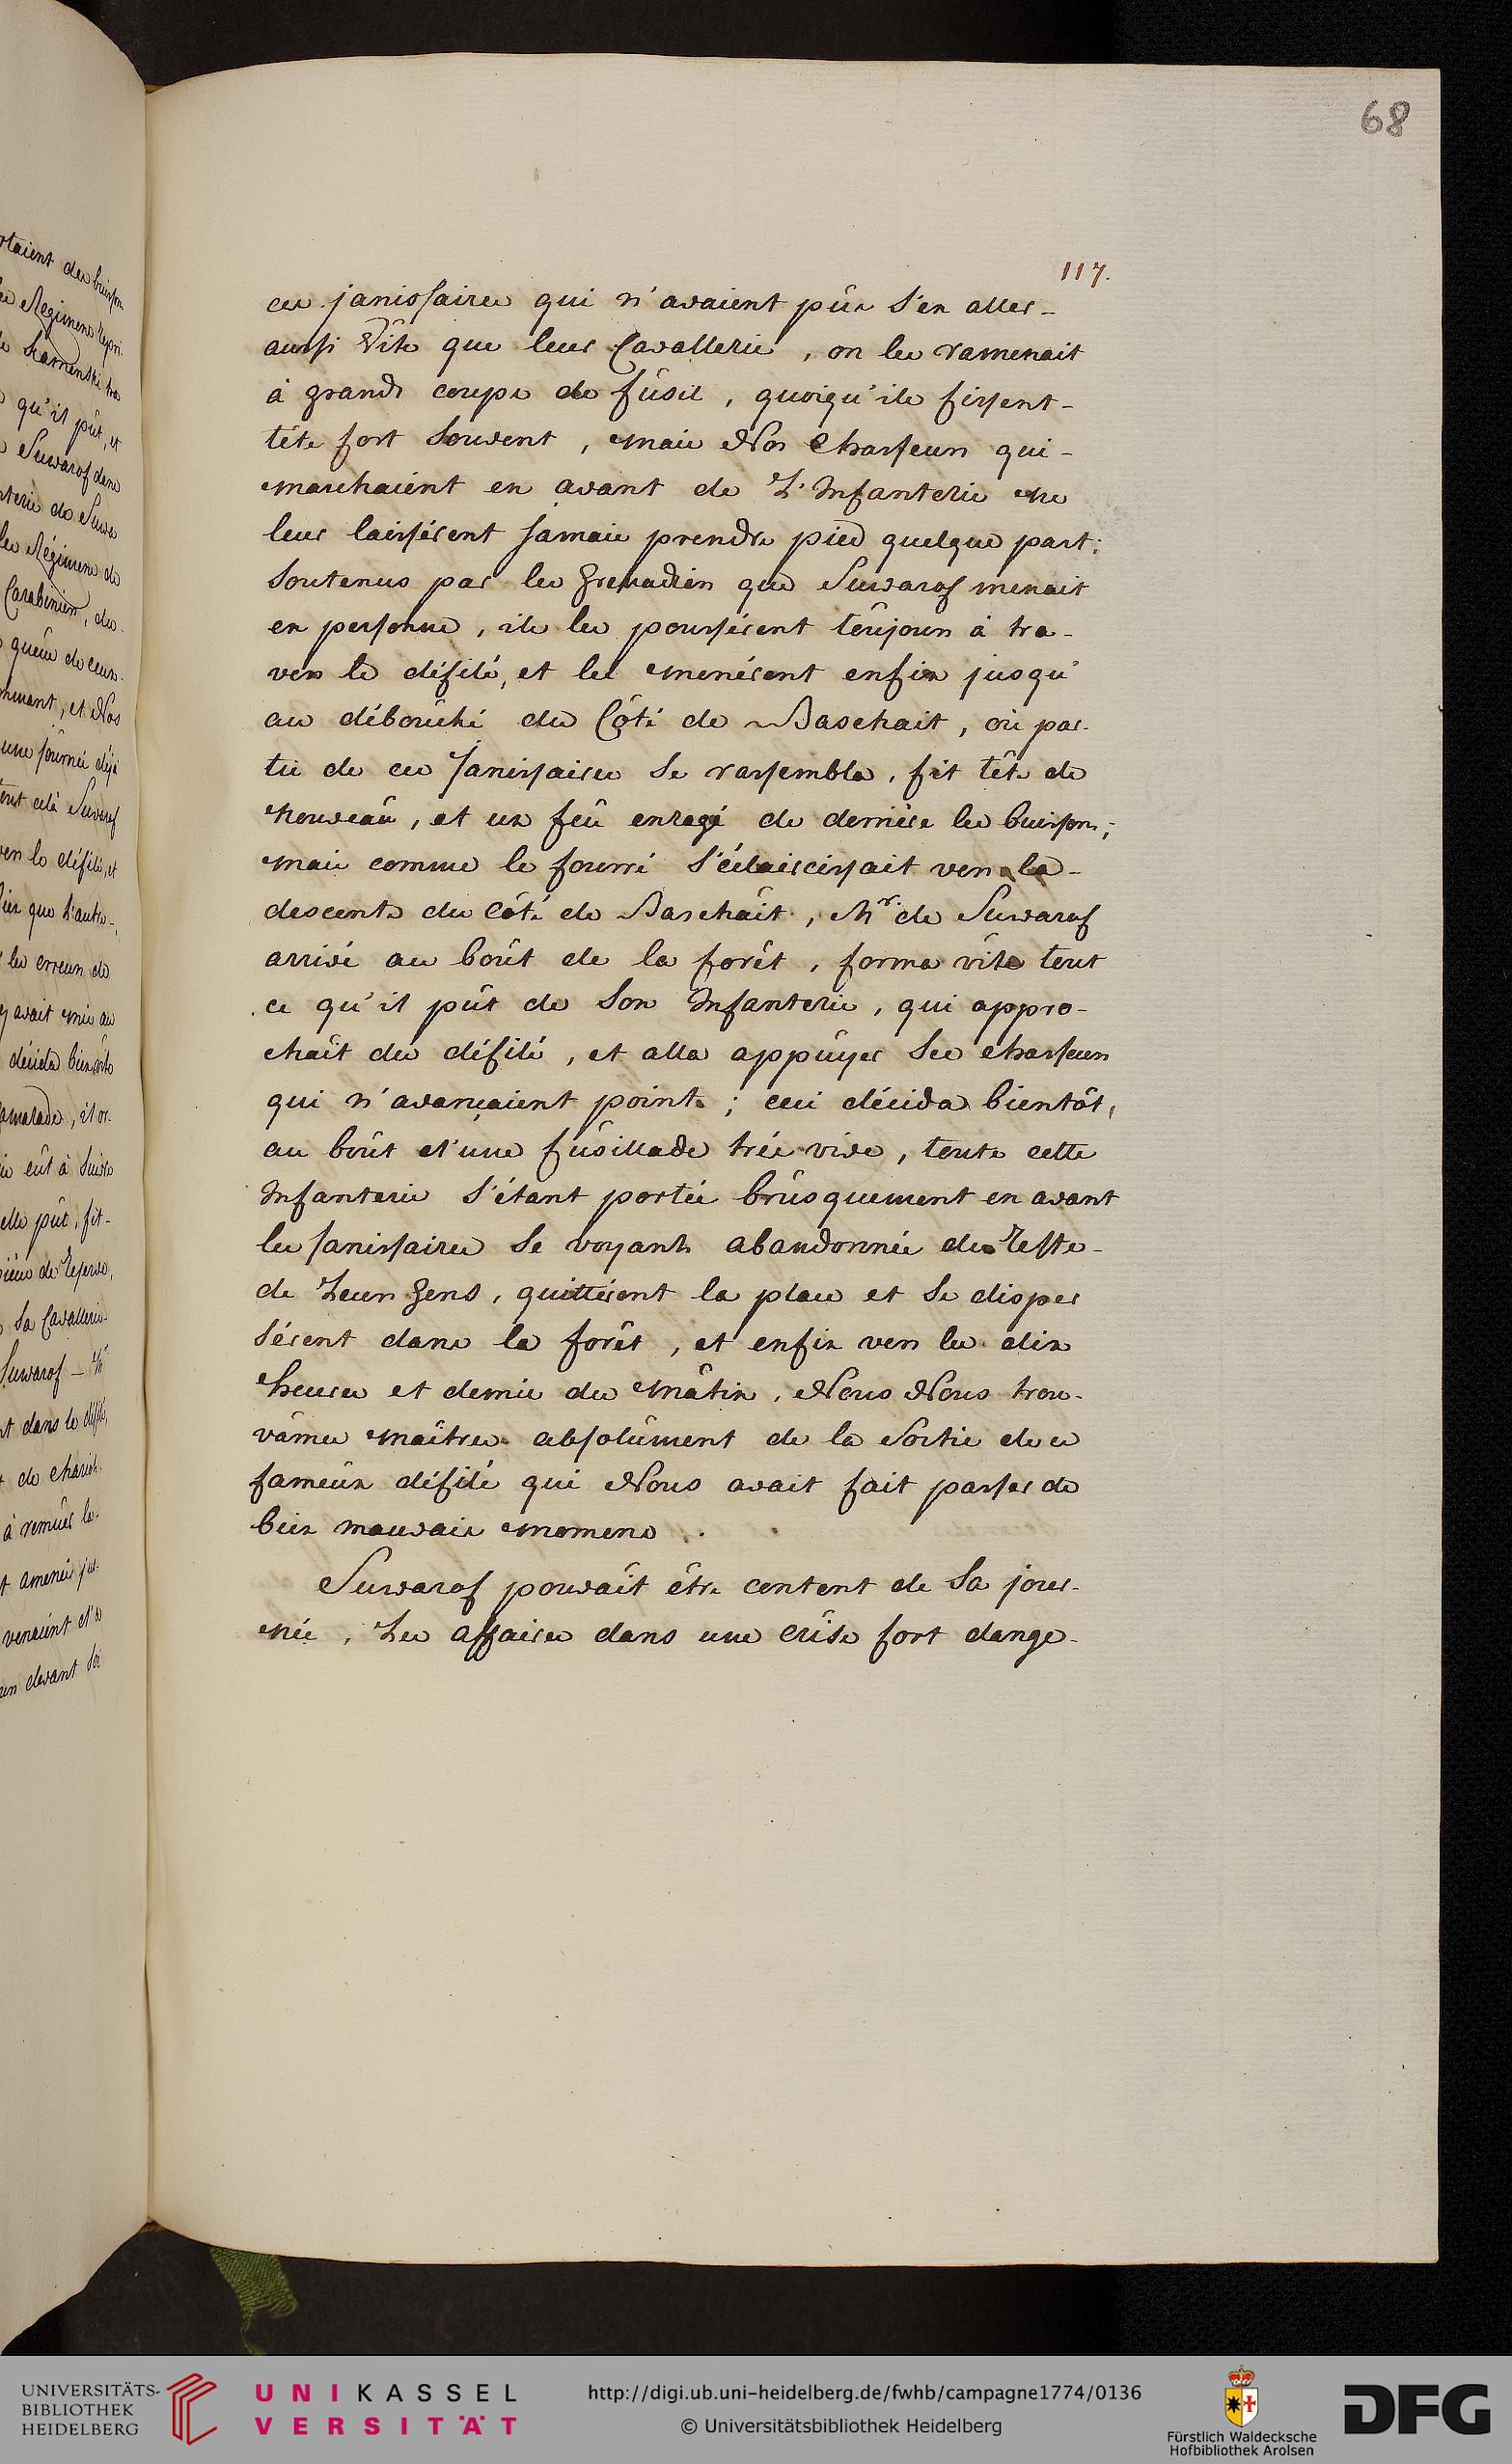 68
117.
ces janissaires qui n'avaient pûs s'en aller-
aussi Vîte que leur Cavallerie, on les ramenait
à grands coups de fûsil, quoiqu'ils fissent-
tête fort souvent, mais Nos Chasseurs qui-
marchaient en avant de L'Infanterie ne
leur laissérent jamais prendre pied quelque part;
Soutenus par les Grenadiers que Suwarof menait
en personne, ils les poussérent toûjours à tra-
vers le défilé, et les menérent enfin jusqu'
au débouché du Côté de Baschait, où par-
tie de ces Janissaires se rassembla, fit tête de
nouveaû, et un feû enragé de derriére les buissons;
mais comme le fourré s'éclaircissait vers la-
descente du côté de Baschait, Mr. de Suwarof
arrivé au boût de la forêt, forma vîte tout
ce qu'il pût de son Infanterie, qui appro-
chaît du défilé, et alla appûyer ses chasseurs
qui n'avançaient point; ceci décida bientôt,
au boût d'une fûsillade trés vive, toute cette
Infanterie s'étant portée brûsquement en avant
les Janissaires se voyants abandonnés du Reste-
de Leurs Gens, quittérent la place et se disper
sérent dans la forêt, et enfin vers les dix
heures et demie du mâtin, Nous Nous trou-
vâmes maîtres absolûment de la Sortie de ce
fameux défilé qui Nous avait fait passer de
bien mauvais momens.
Suwarof pouvaît être content de Sa jour-
née, Les affaires dans une crîse fort dange-
UNIVERSITÄTS-
BIBLIOTHEK
HEIDELBERG
UNIKASSEL
VERSITÄT
http://digi.ub.uni-heidelberg.de/fwhb/campagne1774/0136
© Universitätsbibliothek Heidelberg
Fürstlich Waldecksche
Hofbibliothek Arolsen
DFG